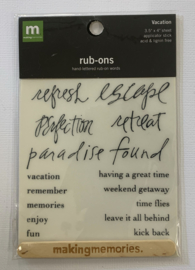 m
making memories
Vacation
3.5" x 6" sheet
applicator stick
acid & lignin free
rub-ons
refresh escape
perfection retreat
paradise found
vacation having a great time
remember weekend getaway
memories time flies
enjoy leave it all behind
fun kick back
makingmemories.